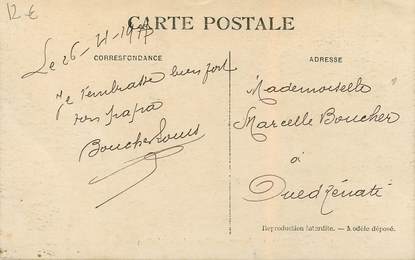 12 €
CARTE POSTALE
CORRESPONDANCE
ADRESSE
Le 26
Je t'embrasse bien fort
ton papa
Boucher Louis
Mademoiselle
Marcelle Boucher
à
Oued Zénati
Reproduction interdite. — Modèle déposé.